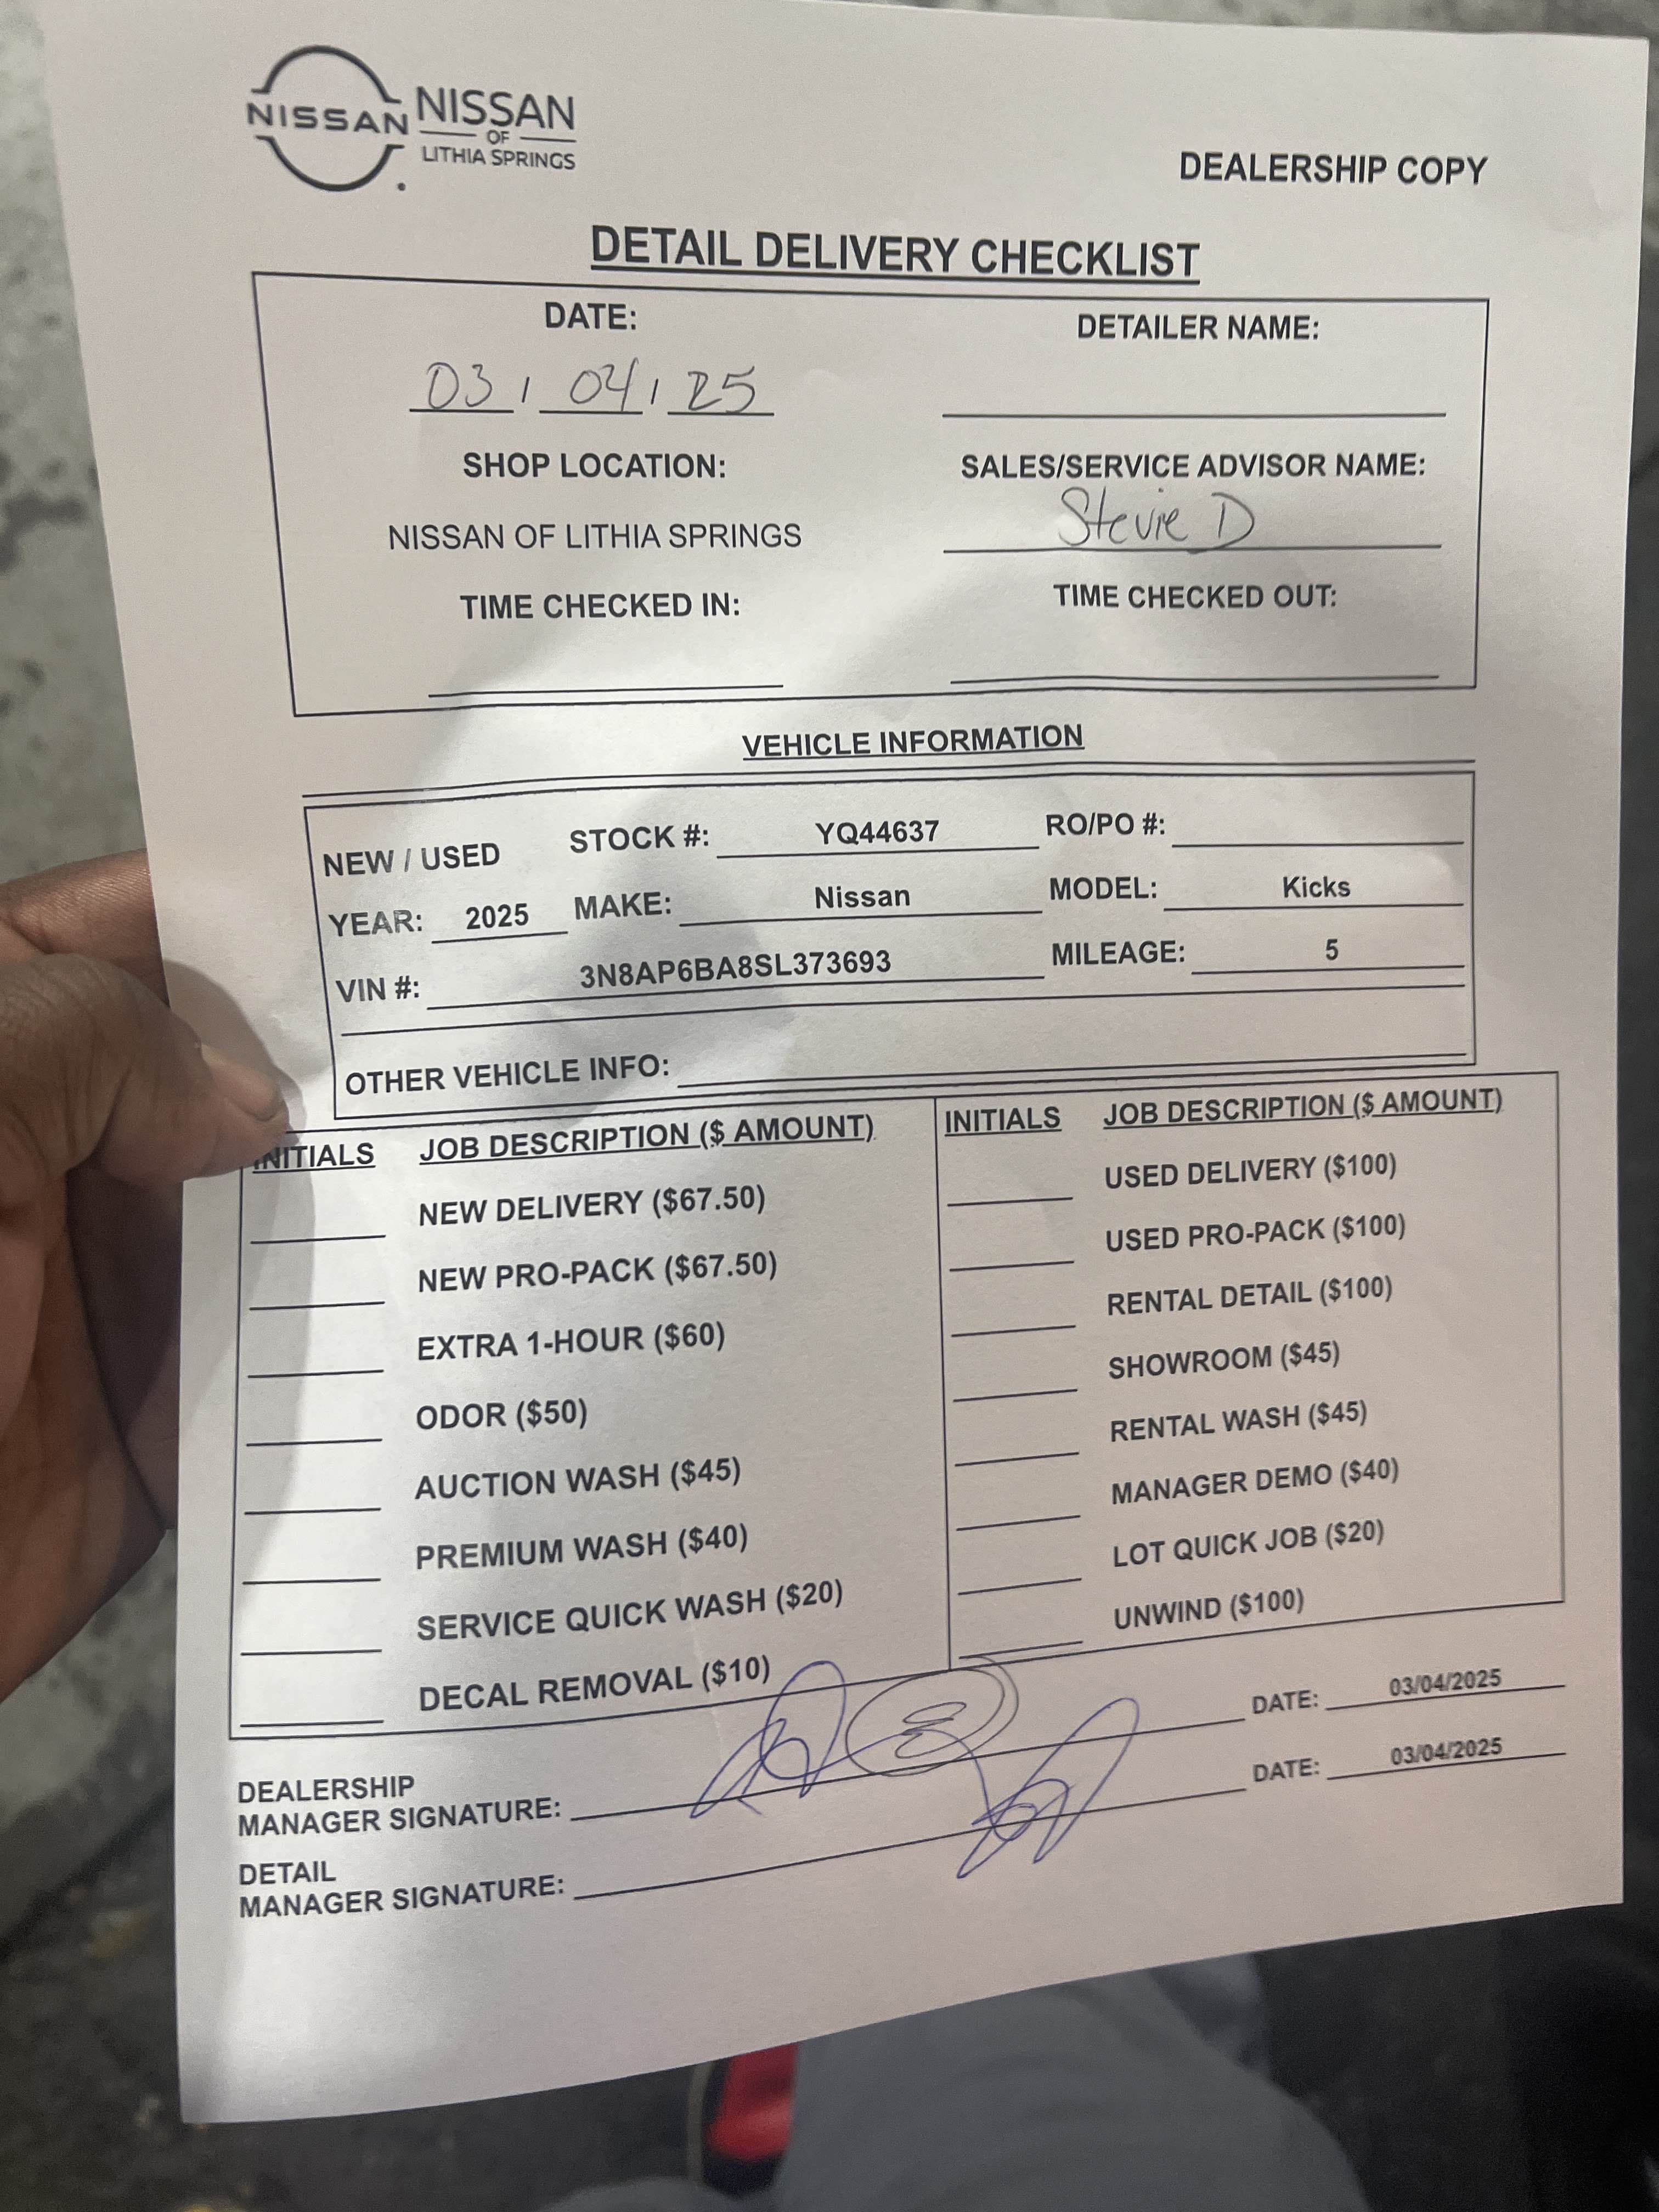 NISSAN
NISSAN
OF
LITHIA SPRINGS
DEALERSHIP COPY
DETAIL DELIVERY CHECKLIST
DATE:
03 / 04 / 25
DETAILER NAME:
SHOP LOCATION:
NISSAN OF LITHIA SPRINGS
SALES/SERVICE ADVISOR NAME:
Stevie D
TIME CHECKED IN:
TIME CHECKED OUT:
VEHICLE INFORMATION
NEW / USED STOCK #: YQ44637 RO/PO #:
YEAR: 2025 MAKE: Nissan MODEL: Kicks
VIN #: 3N8AP6BA8SL373693 MILEAGE: 5
OTHER VEHICLE INFO:
INITIALS JOB DESCRIPTION ($ AMOUNT)
NEW DELIVERY ($67.50)
NEW PRO-PACK ($67.50)
EXTRA 1-HOUR ($60)
ODOR ($50)
AUCTION WASH ($45)
PREMIUM WASH ($40)
SERVICE QUICK WASH ($20)
DECAL REMOVAL ($10)
INITIALS JOB DESCRIPTION ($ AMOUNT)
USED DELIVERY ($100)
USED PRO-PACK ($100)
RENTAL DETAIL ($100)
SHOWROOM ($45)
RENTAL WASH ($45)
MANAGER DEMO ($40)
LOT QUICK JOB ($20)
UNWIND ($100)
DEALERSHIP
MANAGER SIGNATURE: DATE: 03/04/2025
DETAIL
MANAGER SIGNATURE: DATE: 03/04/2025